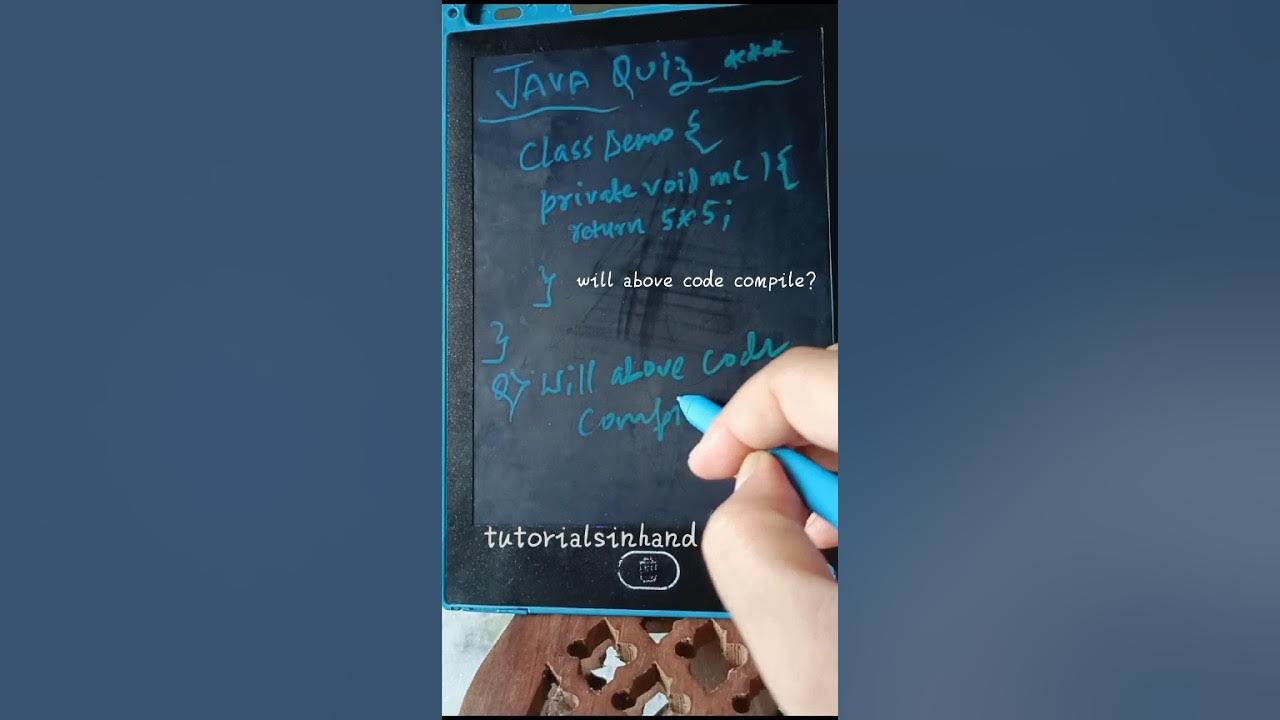 JAVA Quiz ***
Class Demo {
private void m( ) {
return 5*5;
}
will above code compile?
}
Q> Will above code
Comp
tutorialsinhand